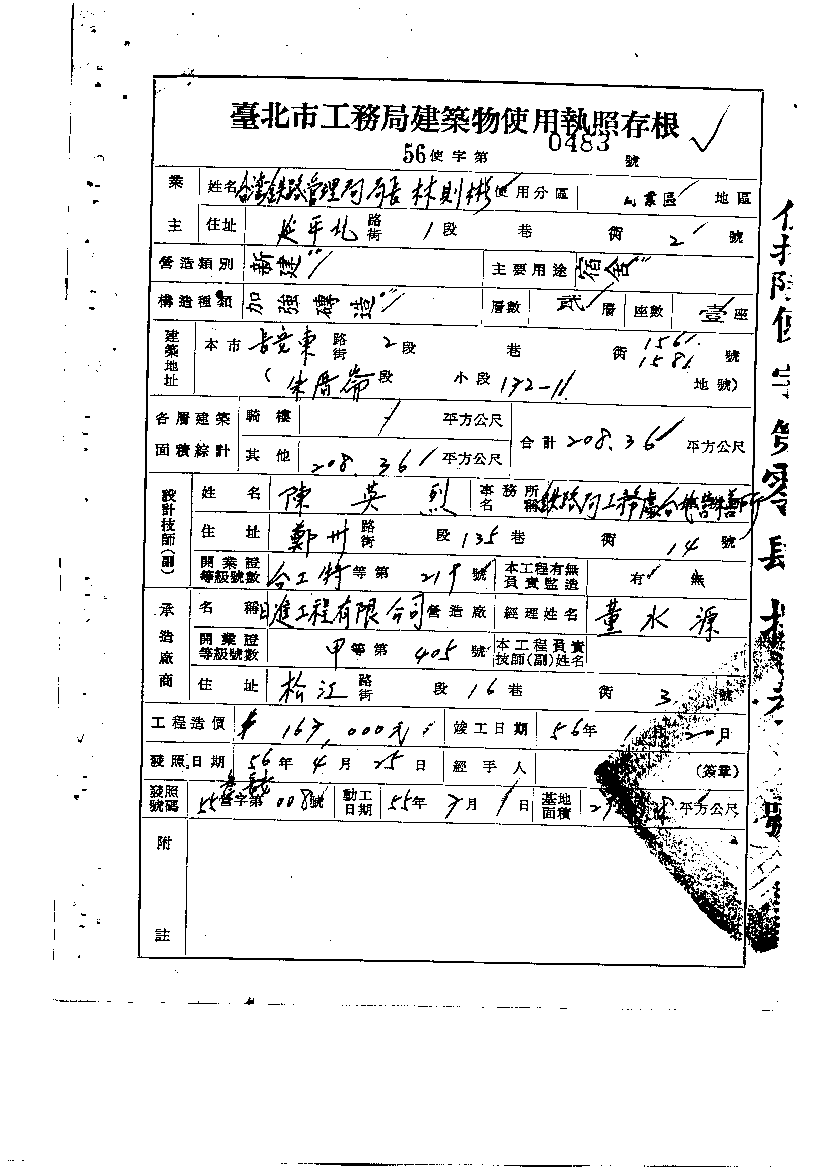 臺北市工務局建築物使用執照存根
56使字第0483號
業主 姓名 台灣鉄路管理局局長 林則彬 使用分區 業區 地區
住址 延平北路街 1段 巷 衖 2號
營造類別 新建 主要用途 宿舍
構造種類 加強磚造 層數 貳層 座數 壹座
建築地址 本市 東路街 2段 巷 衖 156 158 號
(朱厝崙段 小段 132-11 地號)
各層建築面積綜計 騎樓 / 平方公尺 合計 208.36 平方公尺
其他 208.36 平方公尺
設計技師(副) 姓名 陳英烈 事務所名稱 鉄路局工務處
住址 鄭州路街 段 135巷 衖 14號
開業證等級號數 台工特等第 219 號 本工程有無負責監造 有 無
承造廠商 名稱 日進工程有限公司營造廠 經理姓名 董水源
開業證等級號數 甲等第 405號 本工程負責技師(副)姓名
住址 松江路街 段 16巷 衖 3 號
工程造價 167,000元 竣工日期 56年 1月 20日
發照日期 56年 4月 25日 經手人 (簽章)
發照號碼 55 字第 008號 動工日期 55年 7月 1日 基地面積 平方公尺
附註